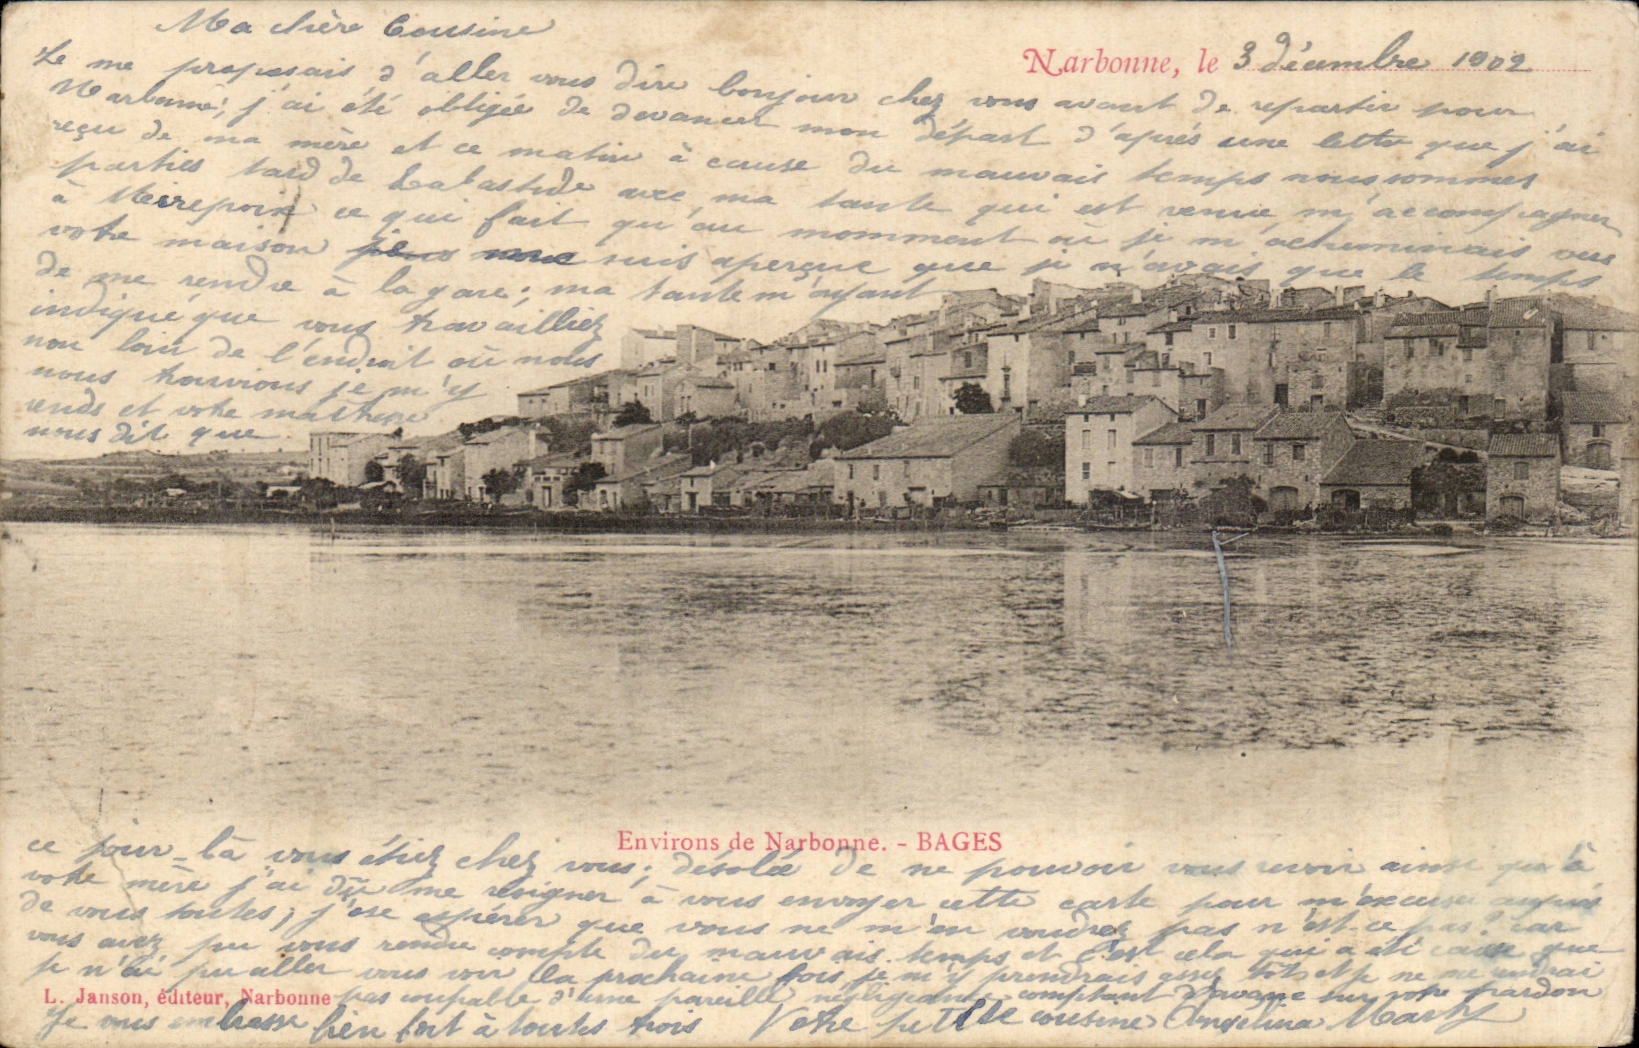 Ma chère Cousine
Narbonne, le 3 décembre 1902
Je me proposais d'aller vous dire bonjour chez vous avant de repartir pour
Narbonne; j'ai été obligée de devancer mon départ d'après une lettre que j'ai
reçu de ma mère et ce matin à cause du mauvais temps nous sommes
parties tard de Labastide avec ma tante qui est venue m'accompagner
à Mirepoix ce qui fait qu'au momment où je m'acheminais vers
votre maison suis aperçue que je n'avais que le temps
de me rendre à la gare; ma tante m'ayant
indiqué que vous travailliez
non loin de l'endroit où nous
nous trouvions je m'y
rends et votre
nous dit que
Environs de Narbonne. - BAGES
ce jour-là vous étiez chez vous; désolée de ne pouvoir vous revoir ainsi qu'à
votre mère j'ai dû me résigner à vous envoyer cette carte pour m'excuser auprès
de vous toutes; j'ose espérer que vous ne m'en voudrez pas n'est-ce pas? car
vous avez pu vous rendre compte du mauvais temps et c'est cela qui a été cause que
je n'ai pu aller vous voir la prochaine fois je m'y prendrais assez tôt et je ne me rendrai
L. Janson, éditeur, Narbonne
pas coupable d'une pareille négligeance comptant d'avance sur votre pardon
Je vous embrasse bien fort à toutes trois Votre petite cousine Angelina Marty